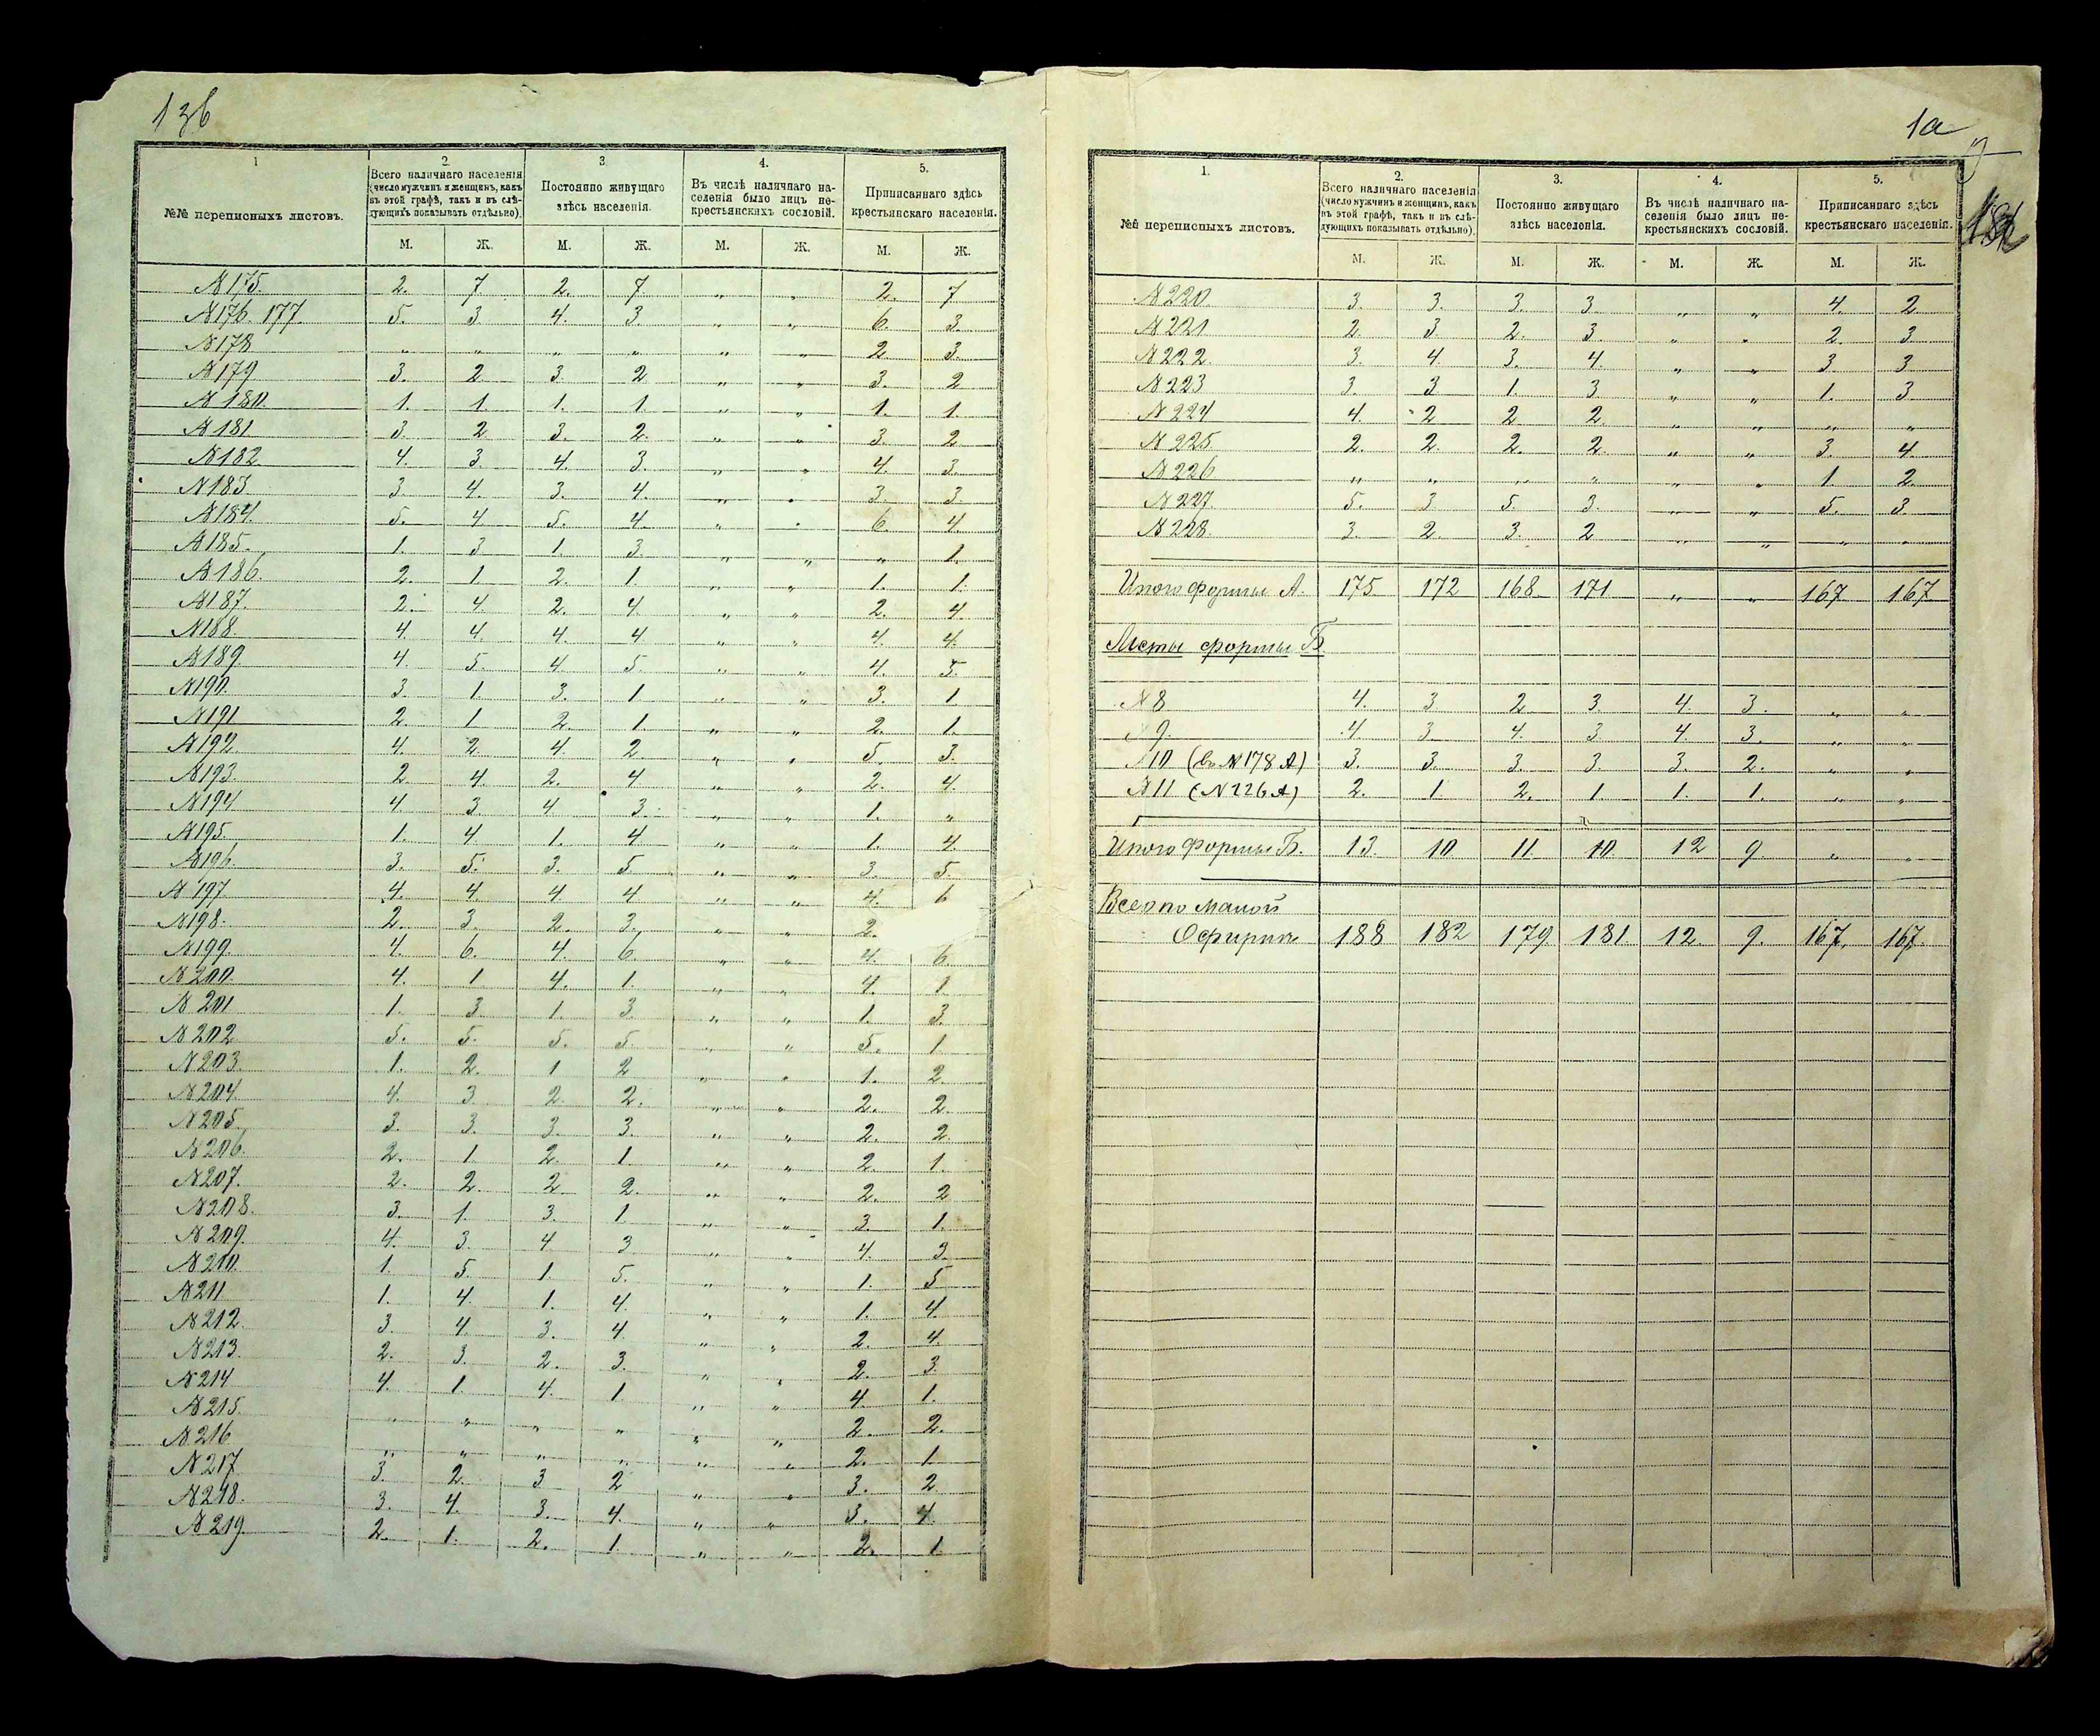 136
1
2.
3.
4.
5.
№№ переписныхъ листовъ.
Всего наличнаго населенія (число мужчинъ и женщинъ, какъ въ этой графѣ, такъ и въ слѣдующихъ показывать отдѣльно).
Постоянно живущаго здѣсь населенія.
Въ числѣ наличнаго населенія было лицъ некрестьянскихъ сословій.
Приписаннаго здѣсь крестьянскаго населенія.
М. Ж. М. Ж. М. Ж. М. Ж.
№175. 2. 7 2. 7. „ „ 2. 7
№176. 177. 5. 3. 4. 3. „ „ 6. 3.
№178 „ „ „ „ „ „ 2. 3.
№179 3. 2 3. 2 „ „ 3. 2
№180. 1. 1. 1. 1. „ „ 1. 1.
№181 3. 2 3. 2. „ „ 3. 2
№182 4. 3. 4. 3. „ „ 4. 3.
№183. 3. 4. 3. 4. „ „ 3. 3.
№184. 5. 4 5. 4. „ „ 6. 4.
№185. 1. 3 1. 3. „ „ „ 1.
№186. 2. 1. 2. 1. „ „ 1. 1.
№187. 2. 4. 2. 4. „ „ 2. 4.
№188. 4. 4. 4. 4 „ „ 4. 4.
№189. 4. 5. 4. 5. „ „ 4. 5.
№190. 3. 1. 3. 1 „ „ 3. 1.
№191 2. 1 2. 1. „ „ 2. 1.
№192. 4. 2. 4 2 „ „ 5. 3.
№193. 2. 4. 2. 4 „ „ 2. 4.
№194 4. 3. 4 3. „ „ 1. „
№195. 1. 4 1. 4 „ „ 1. 4.
№196. 3. 5. 3. 5. „ „ 3. 5.
№197. 4. 4. 4. 4 „ „ 4. 6
№198. 2. 3. 2. 3. „ „ 2.
№199. 4. 6. 4. 6. „ „ 4. 6.
№200. 4. 1 4. 1. „ „ 4. 1
№201 1. 3. 1. 3. „ „ 1. 3.
№202 5. 5. 5. 5. „ „ 5. 1.
№203. 1. 2. 1 2 „ „ 1. 2.
№204. 4. 3 2. 2. „ „ 2. 2.
№205. 3. 3. 3. 3. „ „ 2. 2.
№206. 2. 1. 2. 1. „ „ 2. 1.
№207. 2. 2. 2 2. „ „ 2. 2
№208. 3. 1. 3. 1. „ „ 3. 1.
№209. 4. 3. 4. 3 „ „ 4. 3.
№210. 1. 5. 1. 5. „ „ 1. 5
№211 1. 4. 1. 4. „ „ 1. 4.
№212. 3. 4. 3. 4. „ „ 2. 4.
№213. 2. 3. 2. 3. „ „ 2. 3.
№214 4. 1. 4. 1. „ „ 4 1.
№215. „ „ „ „ „ „ 2. 2.
№216 „ „ „ „ „ „ 2. 1.
№217 3. 2. 3 2 „ „ 3. 2
№218. 3. 4. 3. 4. „ „ 3. 4.
№219. 2. 1. 2. 1. „ „ 2. 1.
1а
1.
2.
3.
4.
5.
№№ переписныхъ листовъ.
Всего наличнаго населенія (число мужчинъ и женщинъ, какъ въ этой графѣ, такъ и въ слѣдующихъ показывать отдѣльно).
Постоянно живущаго здѣсь населенія.
Въ числѣ наличнаго населенія было лицъ некрестьянскихъ сословій.
Приписаннаго здѣсь крестьянскаго населенія.
М. Ж. М. Ж. М. Ж. М. Ж.
№220. 3. 3. 3. 3. „ „ 4. 2.
№221 2. 3 2. 3. „ „ 2. 3
№222. 3. 4. 3. 4. „ „ 3. 3
№223 3. 3 1. 3. „ „ 1. 3
№224 4. 2 2 2. „ „ „ „
№225. 2. 2. 2. 2. „ „ 3. 4.
№226 „ „ „ „ „ „ 1. 2.
№227. 5. 3 5. 3. „ „ 5. 3.
№228. 3. 2. 3. 2 „ „ „ „
Итого формы А. 175. 172 168 171. „ „ 167 167
Листы формы Б
№8 4. 3 2. 3 4. 3. „ „
№9. 4. 3 4. 3. 4 3. „ „
№10 (в. №178 А) 3. 3. 3. 3. 3. 2. „ „
№11 (№226 А) 2. 1. 2. 1. 1. 1. „ „
Итого формы Б. 13. 10 11. 10. 12 9. „ „
Всего по малой
188 182 179 181. 12 9. 167. 167.